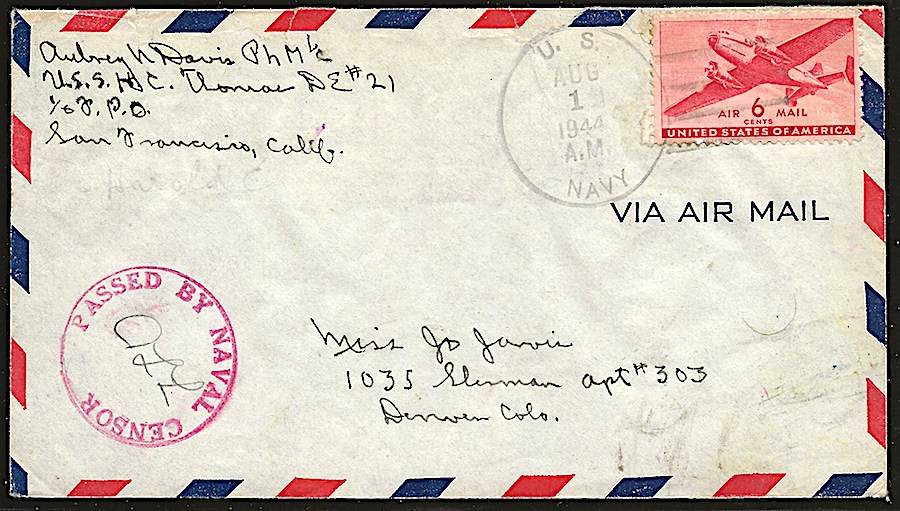 Aubrey N Davis PhM 1/c
U.S.S. H C. Thomas DE #21
℅ F. P.O.
San Francisco, Calif.
Harold C
U. S.
AUG
1
1944
A.M.
NAVY
AIR 6 MAIL
CENTS
UNITED STATES OF AMERICA
VIA AIR MAIL
PASSED BY NAVAL CENSOR
Miss Jo Jarvis
1035 Sherman apt #303
Denver Colo.